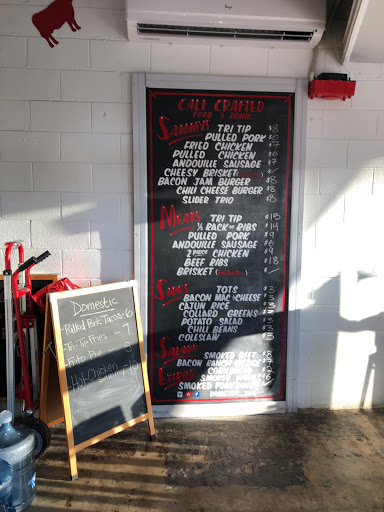 CALI CRAFTED
FOOD & DRINK
SAMMYS
TRI TIP $8
PULLED PORK
FRIED CHICKEN
PULLED CHICKEN
ANDOUILLE SAUSAGE
CHEESY BRISKET
BACON JAM BURGER $8
CHILI CHEESE BURGER $8
SLIDER TRIO
MEATS
TRI TIP
½ RACK OF RIBS $14
PULLED PORK
ANDOUILLE SAUSAGE
2 PIECE CHICKEN
BEEF RIBS $18
BRISKET
SIDES
TOTS
BACON MAC & CHEESE
CAJUN RICE
COLLARD GREENS
POTATO SALAD
CHILI BEANS
COLESLAW
SMOKED BEET
BACON RANCH
EXTRAS
CORNBREAD
SMOKED
SMOKED PORK
Domestic
-Pulled Pork Tacos - 6
-Tri-Tip Fries - 7
-Frito Pie - 8
-Hot Chicken